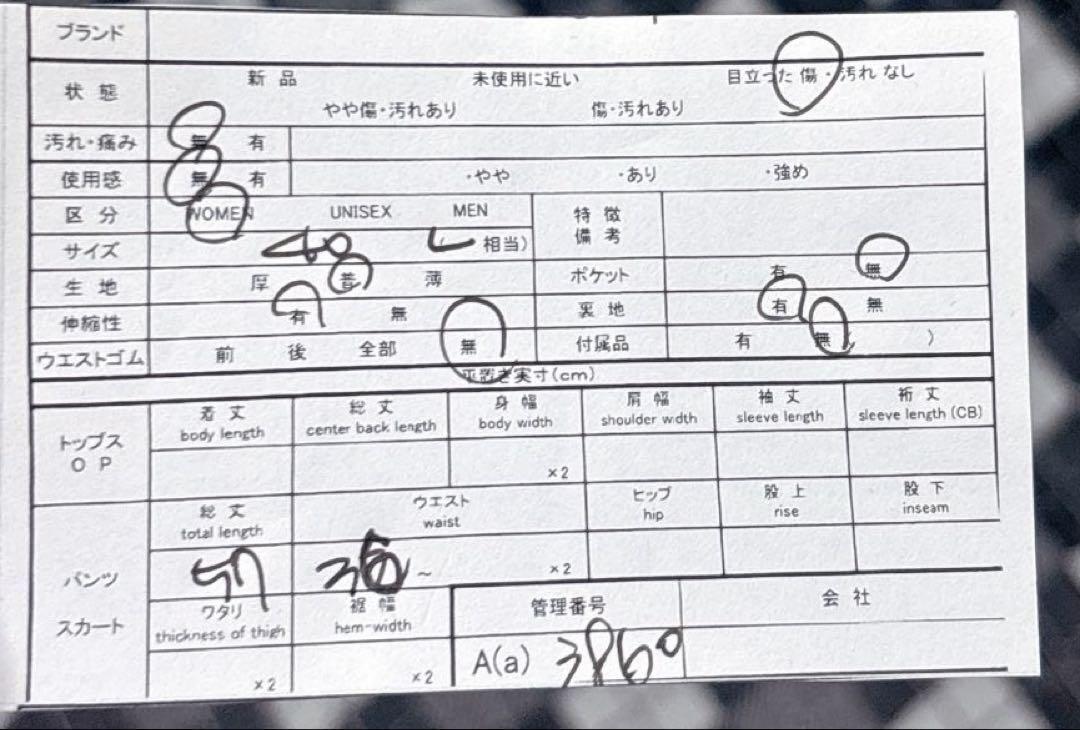 ブランド
状態 新品 未使用に近い 目立った傷・汚れなし
やや傷・汚れあり 傷・汚れあり
汚れ・痛み 無 有
使用感 無 有 ・やや ・あり ・強め
区分 WOMEN UNISEX MEN 特徴備考
サイズ L 相当)
生地 厚 普 薄 ポケット 有 無
伸縮性 有 無 裏地 有 無
ウエストゴム 前 後 全部 無 付属品 有 無 )
平置き実寸(cm)
トップス OP
着丈 総丈 身幅 肩幅 袖丈 裄丈
body length center back length body width shoulder wdth sleeve length sleeve length (CB)
×2
パンツ スカート
総丈 ウエスト ヒップ 股上 股下
total length waist hip rise inseam
57 ~ ×2
ワタリ 裾幅 管理番号 会社
thickness of thigh hem-width
×2 ×2 A(a) 3860